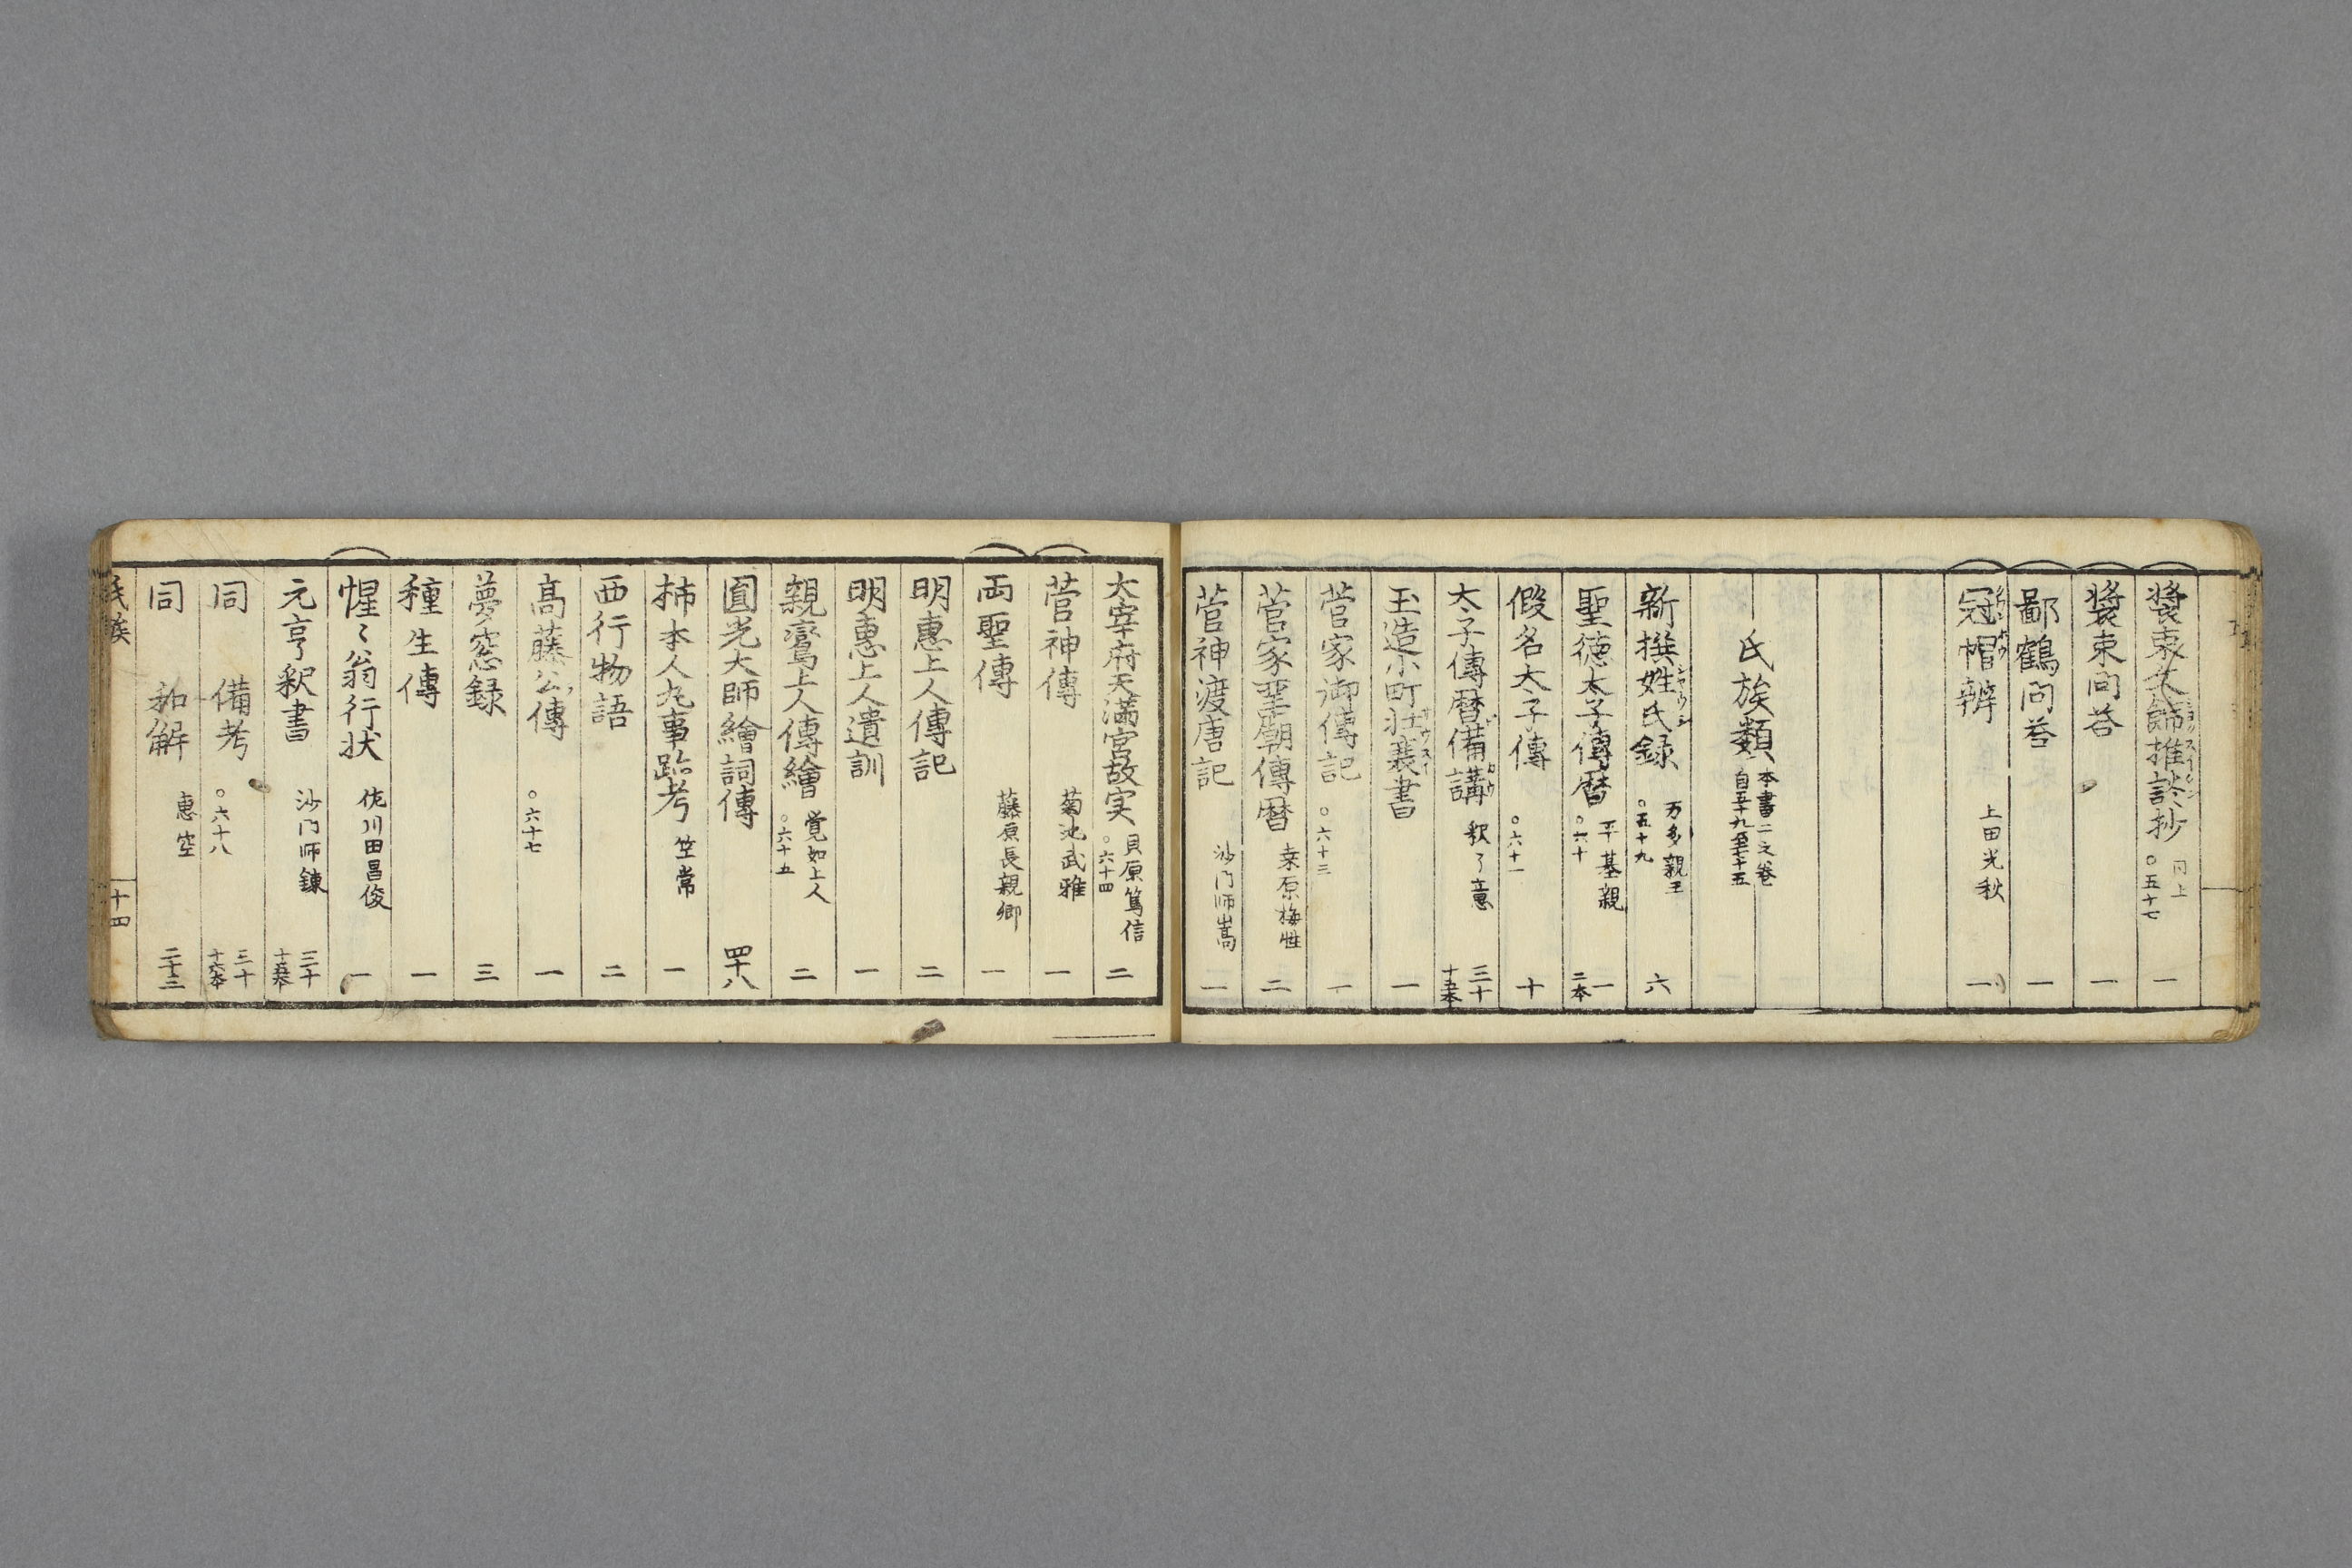 装束文飾推談抄 同上 ○五十七 一
装束問答 一
鄙鶴問答 一
冠帽辨 上田光秋 一
氏族類 本書二之巻 自五十九至七十五
新撰姓氏録 万多親王 ○五十九 六
聖徳太子傳暦 平基親 ○六十 一 二本
假名太子傳 ○六十一 十
太子傳暦備講 釈了意 三十 十五本
玉造小町壮衰書 一
菅家御傳記 ○六十三 一
菅家聖廟傳暦 桒原梅性 二
菅神渡唐記 沙门师嵩 一
太宰府天満宮故实 貝原篤信 ○六十四 二
菅神傳 菊池武雅 一
両聖傳 藤原長親卿 一
明惠上人傳記 二
明惠上人遺訓 一
親鸞上人傳繪 覚如上人 ○六十五 二
圓光大師繪詞傳 四十八
柿本人丸事跡考 竺常 一
西行物語 二
高藤公傳 ○六十七 一
夢窓録 三
種生傳 一
惺々翁行状 佐川田昌俊 一
元亨釈書 沙门师錬 三十 十五本
同 備考 ○六十八 三十
同 和解 惠空 二十三
氏族 十四